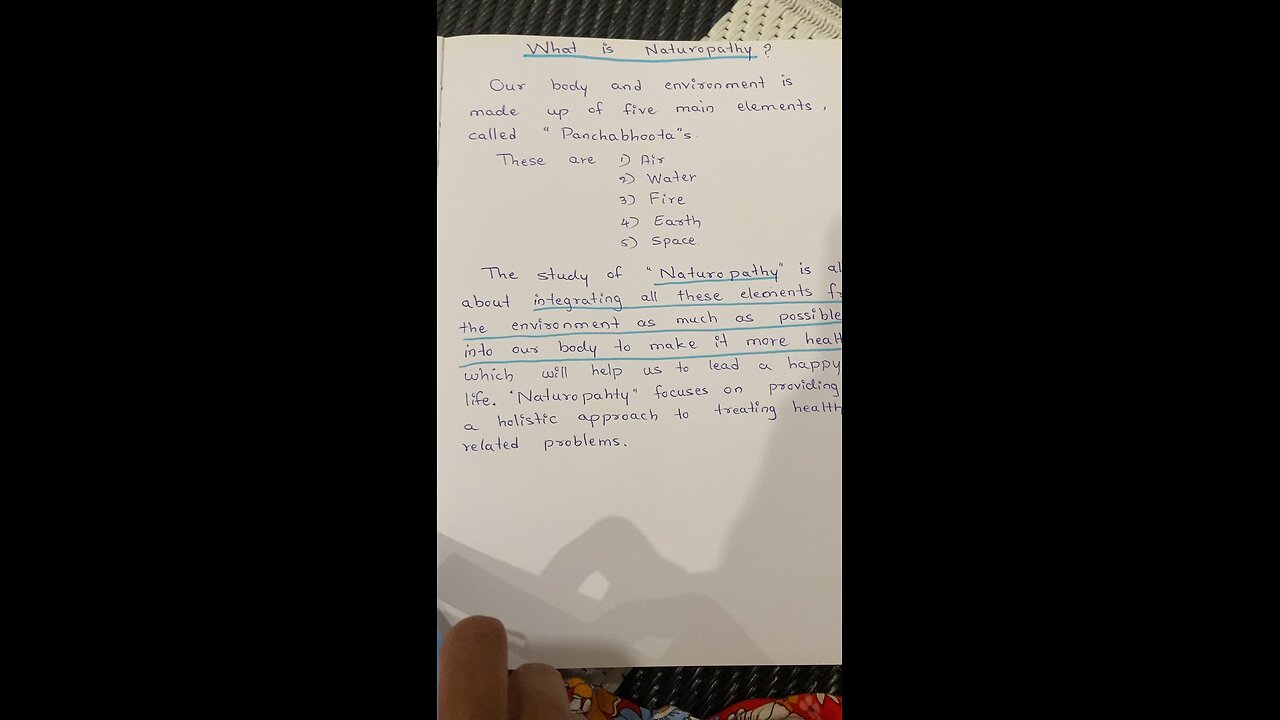 What is Naturopathy ?
Our body and environment is
made up of five main elements,
called "Panchabhoota"s.
These are 1) Air
2) Water
3) Fire
4) Earth
5) Space.
The study of "Naturopathy" is al
about integrating all these elements fr
the environment as much as possible
into our body to make it more healt
which will help us to lead a happy
life. "Naturopahty" focuses on providing
a holistic approach to treating health
related problems.